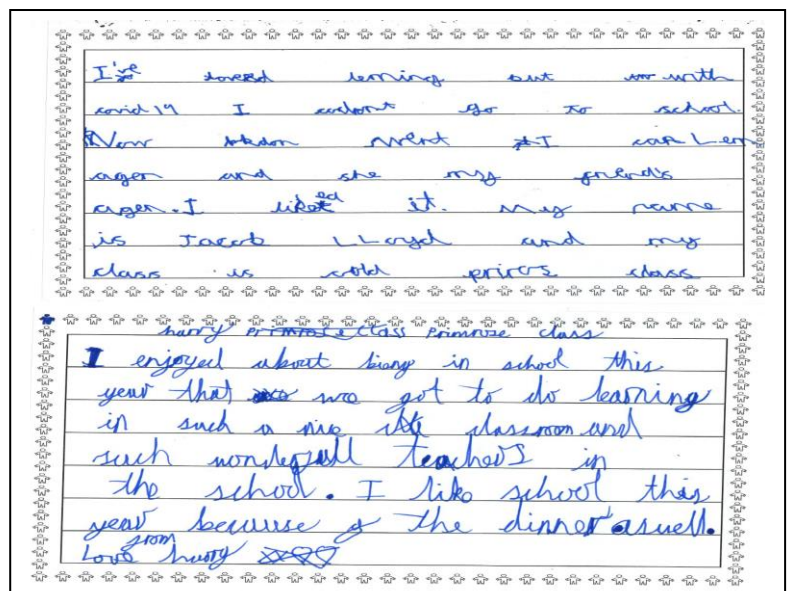 I've loved lerning but with
covid 19 I codont go to school.
Now went I can Lern
agen and she my friend's
agen. I liked it. My name
is Jacob LLoyd and my
class is cold priros class
harry primrose class primrose class
I enjoyed about biang in school this
year that we got to do learning
in such a nice classroom and
such wonderfull teachers in
the school. I like school this
year because of the dinner aswell.
Love from harry